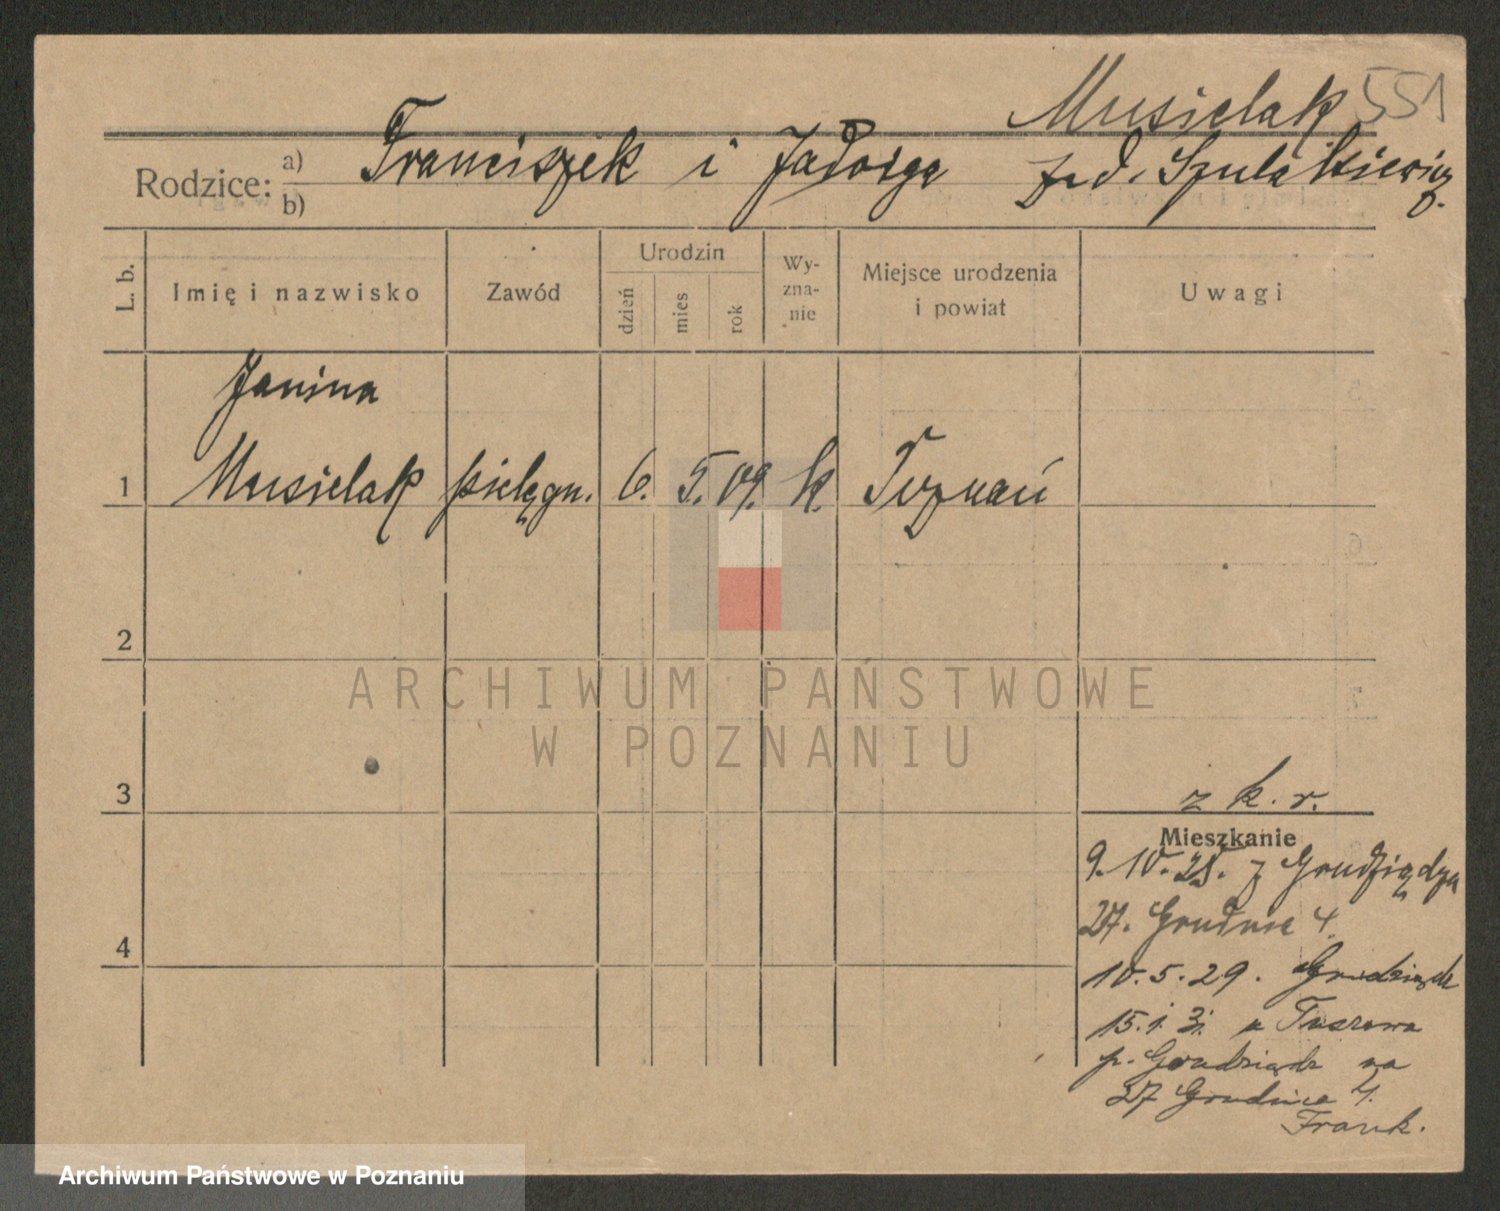 Musielak 551
Rodzice: a) Franciszek i Jadwiga zd. Szulakiewicz
b)
L. b.
Imię i nazwisko
Zawód
Urodzin
dzień
mies
rok
Wy-
zna-
nie
Miejsce urodzenia
i powiat
Uwagi
Janina
1 Musielak pielęgn. 6. 5. 09. k. Poznań
2
3
z k. r.
Mieszkanie
9. 10. 28. z Grudziądza
27. Grudnia 4.
4
10. 5. 29. Grudziądz
15. 1. 31. z Tuszewa
p. Grudziądz na
27 Grudnia 4.
Frank.
ARCHIWUM PAŃSTWOWE
W POZNANIU
Archiwum Państwowe w Poznaniu